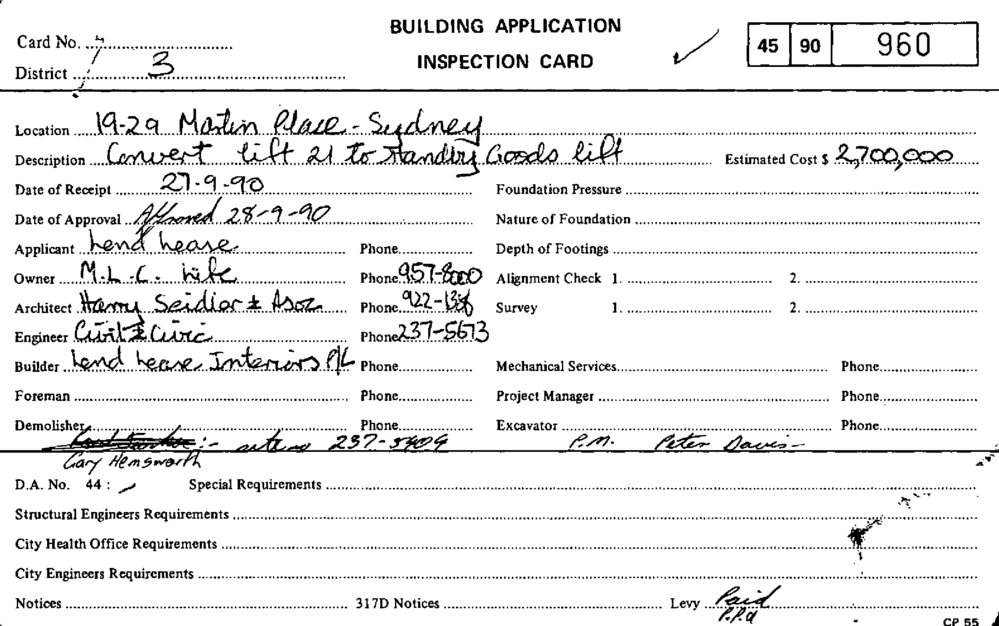 BUILDING APPLICATION
Card No. 45 90 960
INSPECTION CARD
District 3
Location 19-29 Martin Place - Sydney
Description Convert lift 21 to standby Goods lift Estimated Cost $ 2,700,000
Date of Receipt 27-9-90 Foundation Pressure
Date of Approval Approved 28-9-90 Nature of Foundation
Applicant Lend Lease Phone Depth of Footings
Owner M.L.C. Life Phone 957-8000 Alignment Check 1. 2.
Architect Harry Seidler & Asoc Phone 922-13 Survey 1. 2.
Engineer Civil & Civic Phone 237-5673
Builder Lend Lease Interiors P/L Phone Mechanical Services Phone
Foreman Phone Project Manager Phone
Demolisher Phone Excavator Phone
:- 237-5409 P.M. Peter Davis
Gary Hemsworth
D.A. No. 44 : Special Requirements
Structural Engineers Requirements
City Health Office Requirements
City Engineers Requirements
Notices 317D Notices Levy Paid
P.P.a
CP 55